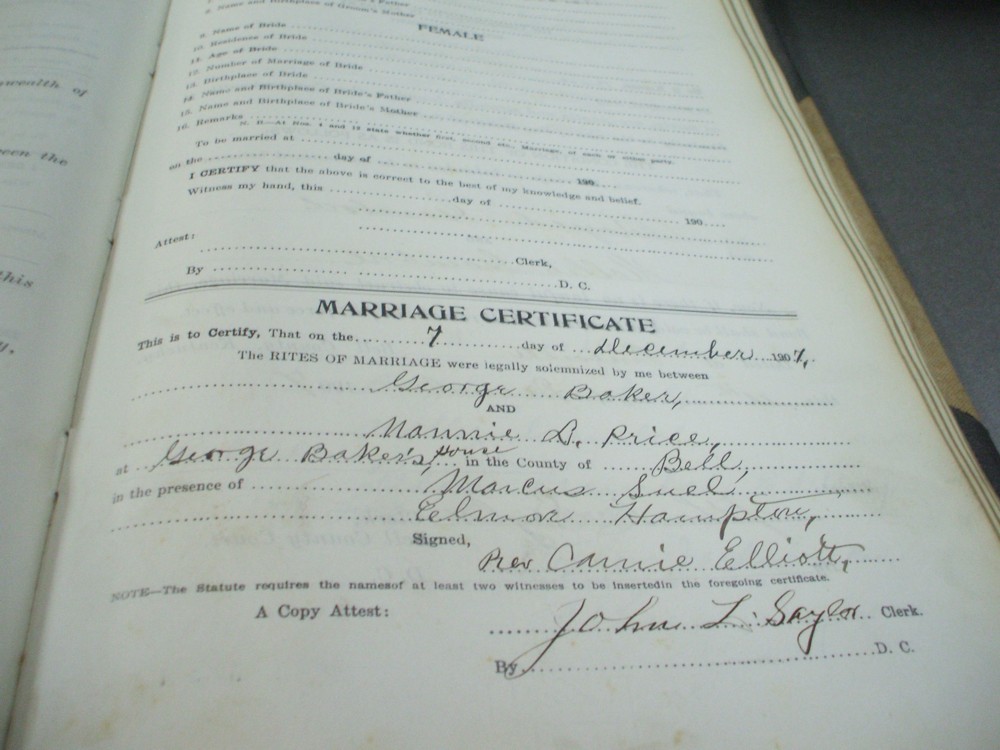 wealth of
een the
this
y,
8. Name and Birthplace of Groom's Mother
FEMALE
9. Name of Bride
10. Residence of Bride
11. Age of Bride
12. Number of Marriage of Bride
13. Birthplace of Bride
14. Name and Birthplace of Bride's Father
15. Name and Birthplace of Bride's Mother
16. Remarks
N. B.—At Nos. 4 and 12 state whether first, second, etc., Marriage, of each or either party.
To be married at
on the day of 190
I CERTIFY that the above is correct to the best of my knowledge and belief.
Witness my hand, this day of 190
Attest: Clerk,
By D. C.
MARRIAGE CERTIFICATE
This is to Certify, That on the 7 day of December 1907,
The RITES OF MARRIAGE were legally solemnized by me between
George Baker,
AND
Nannie L. Price,
at George Baker's house in the County of Bell,
in the presence of Marcus Snell,
Elmore Hampton,
Signed,
Rev Cannie Elliott,
NOTE—The Statute requires the namesof at least two witnesses to be insertedin the foregoing certificate.
A Copy Attest:
John L. Saylor Clerk.
By D. C.